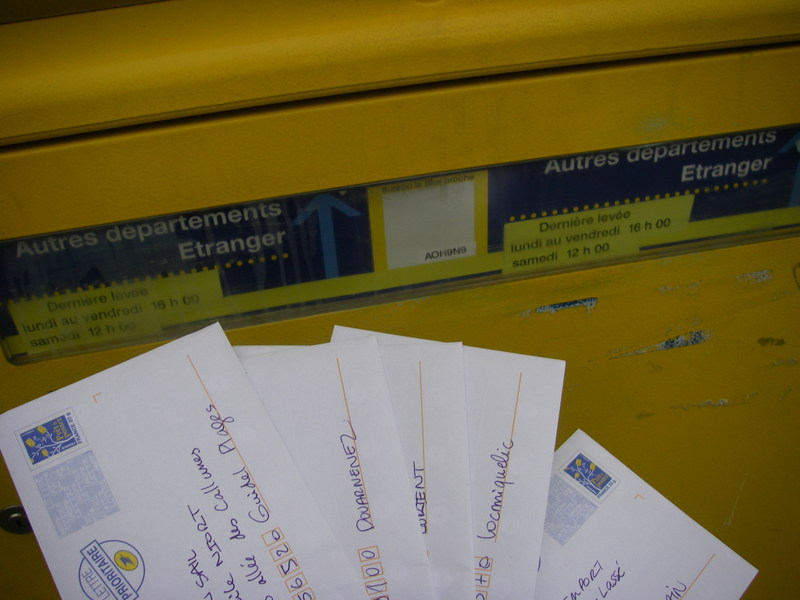 Autres départements
Etranger
Dernière levée
lundi au vendredi 16 h 00
samedi 12 h 00
AOH9N9
Autres départements
Etranger
Dernière levée
lundi au vendredi 16 h 00
samedi 12 h 00
LETTRE
PRIORITAIRE
SAIL
NIORT
allée des Callunes
56520 Guidel Plages
100 DOUARNENEZ
Locmiquelic